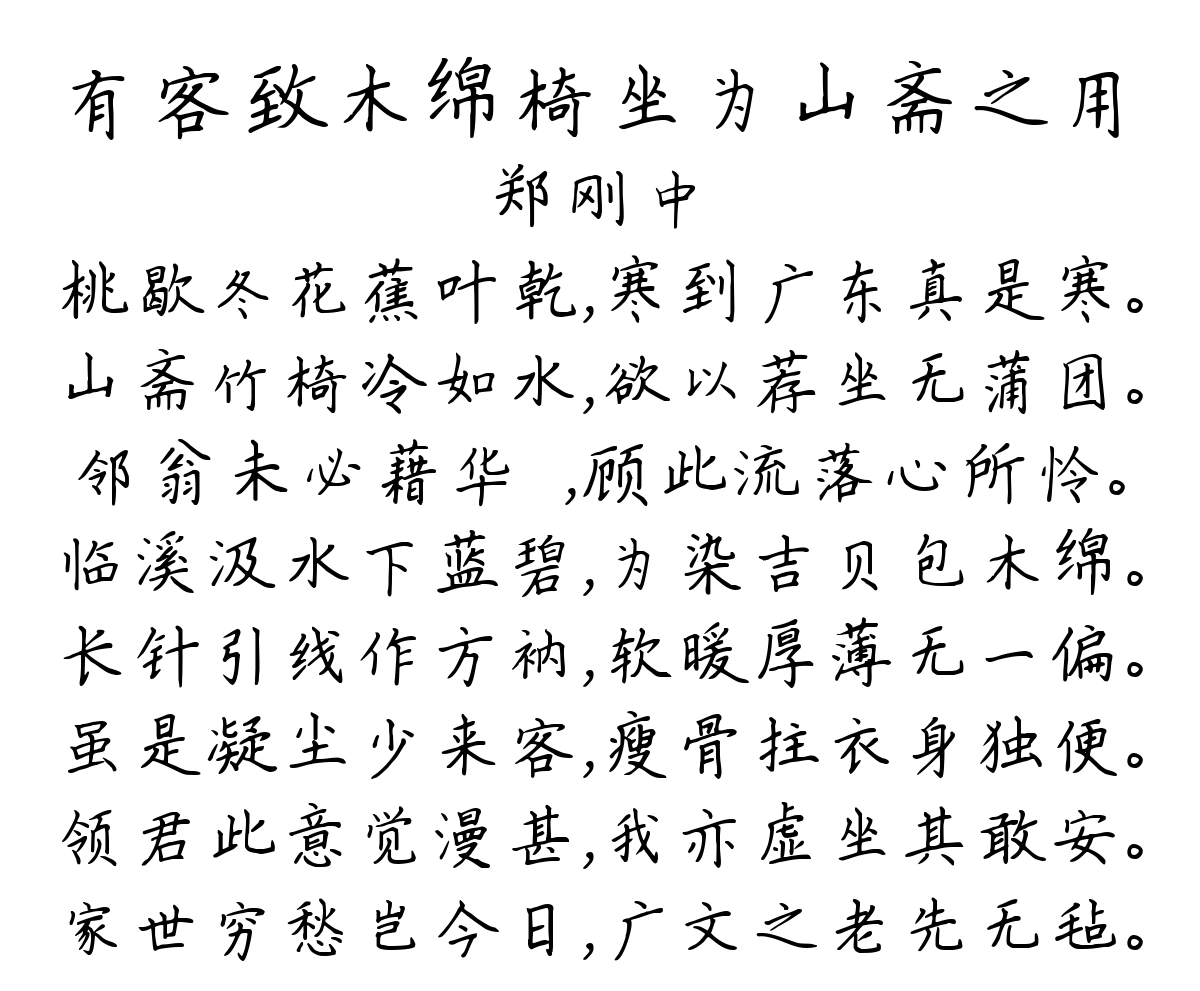 有客致木绵椅坐为山斋之用
郑刚中
桃歇冬花蕉叶乾,寒到广东真是寒。
山斋竹椅冷如水,欲以荐坐无蒲团。
邻翁未必藉华 ,顾此流落心所怜。
临溪汲水下蓝碧,为染吉贝包木绵。
长针引线作方衲,软暖厚薄无一偏。
虽是凝尘少来客,瘦骨拄衣身独便。
领君此意觉漫甚,我亦虚坐其敢安。
家世穷愁岂今日,广文之老先无毡。